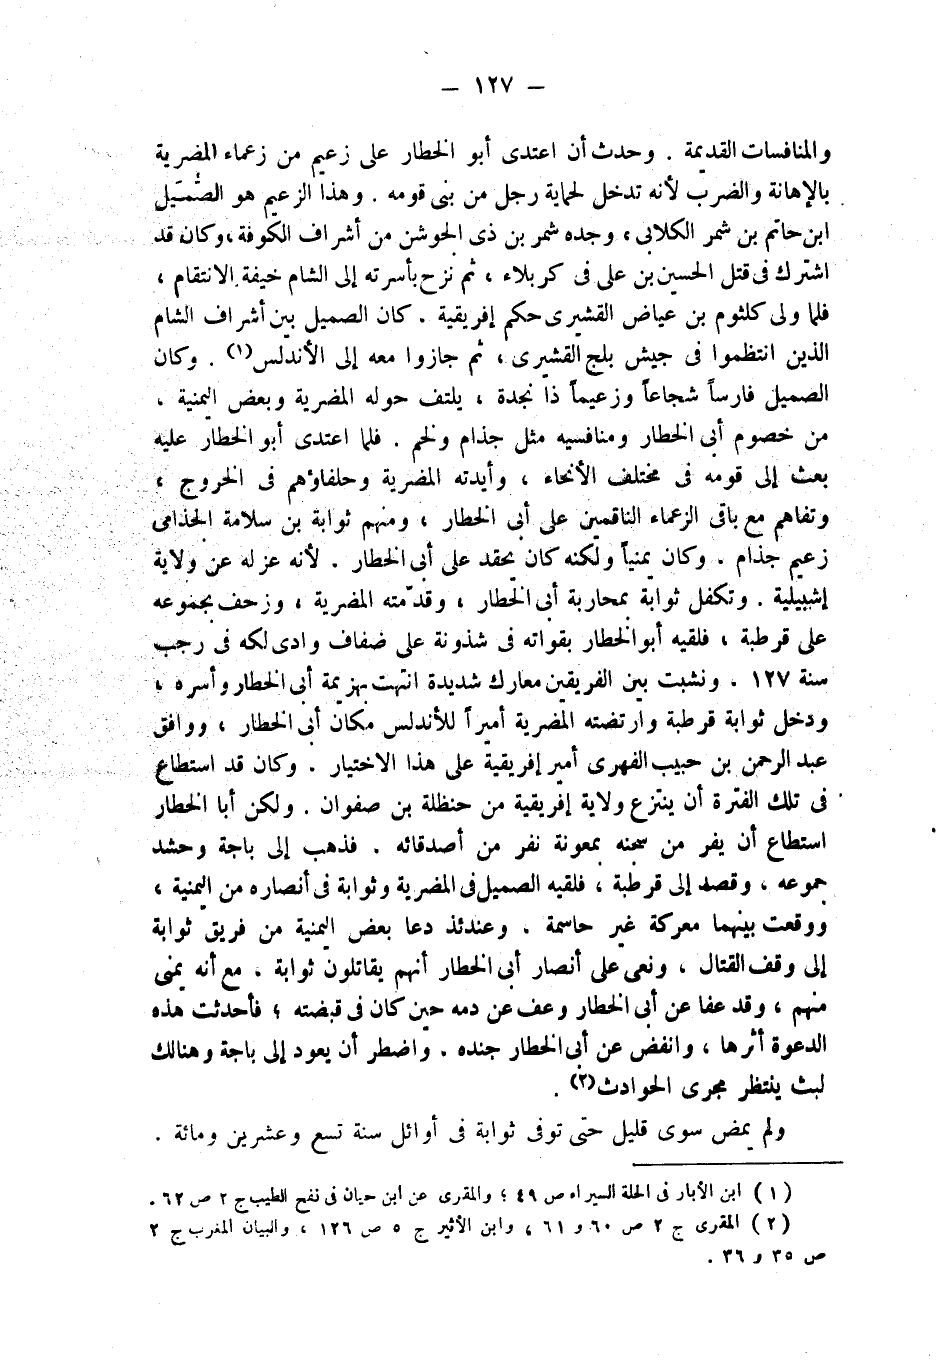 — ١٢٧ —
والمنافسات القديمة . وحدث أن اعتدى أبو الخطار على زعيم من زعماء المضرية
بالإهانة والضرب لأنه تدخل لحماية رجل من بنى قومه . وهذا الزعيم هو الصُّمَيل
ابن حاتم بن شمر الكلابى ، وجده شمر بن ذى الجوشن من أشراف الكوفة ، وكان قد
اشترك فى قتل الحسين بن على فى كربلاء ، ثم نزح بأسرته إلى الشام خيفة الانتقام ،
فلما ولى كلثوم بن عياض القشيرى حكم إفريقية . كان الصميل بين أشراف الشام
الذين انتظموا فى جيش بلج القشيرى ، ثم جازوا معه إلى الأندلس(١) . وكان
الصميل فارساً شجاعاً وزعيماً ذا نجدة ، يلتف حوله المضرية وبعض اليمنية ،
من خصوم أبى الخطار ومنافسيه مثل جذام ولخم . فلما اعتدى أبو الخطار عليه
بعث إلى قومه فى مختلف الأنحاء ، وأيدته المضرية وحلفاؤهم فى الخروج ،
وتفاهم مع باقى الزعماء الناقمين على أبى الخطار ، ومنهم ثوابة بن سلامة الجذامى
زعيم جذام . وكان يمنياً ولكنه كان يحقد على أبى الخطار . لأنه عزله عن ولاية
إشبيلية . وتكفل ثوابة بمحاربة أبى الخطار ، وقدّمته المضرية ، وزحف بجموعه
على قرطبة ، فلقيه أبو الخطار بقواته فى شذونة على ضفاف وادى لكه فى رجب
سنة ١٢٧ . ونشبت بين الفريقين معارك شديدة انتهت بهزيمة أبى الخطار وأسره ،
ودخل ثوابة قرطبة وارتضته المضرية أميراً للأندلس مكان أبى الخطار ، ووافق
عبد الرحمن بن حبيب الفهرى أمير إفريقية على هذا الاختيار . وكان قد استطاع
فى تلك الفترة أن ينتزع ولاية إفريقية من حنظلة بن صفوان . ولكن أبا الخطار
استطاع أن يفر من سجنه بمعونة نفر من أصدقائه . فذهب إلى باجة وحشد
جموعه ، وقصد إلى قرطبة ، فلقيه الصميل فى المضرية وثوابة فى أنصاره من اليمنية ،
ووقعت بينهما معركة غير حاسمة . وعندئذ دعا بعض اليمنية من فريق ثوابة
إلى وقف القتال ، ونعى على أنصار أبى الخطار أنهم يقاتلون ثوابة . مع أنه يمنى
منهم ، وقد عفا عن أبى الخطار وعف عن دمه حين كان فى قبضته ؛ فأحدثت هذه
الدعوة أثرها ، وانفض عن أبى الخطار جنده . واضطر أن يعود إلى باجة وهنالك
لبث ينتظر مجرى الحوادث(٢) .
ولم يمض سوى قليل حتى توفى ثوابة فى أوائل سنة تسع وعشرين ومائة .
(١) ابن الأبار فى الحلة السيراء ص ٤٩ ؛ والمقرى عن ابن حيان فى نفح الطيب ج ٢ ص ٦٢ .
(٢) المقرى ج ٢ ص ٦٠ و ٦١ ، وابن الأثير ج ٥ ص ١٢٦ ، والبيان المغرب ج ٢
ص ٣٥ و ٣٦ .